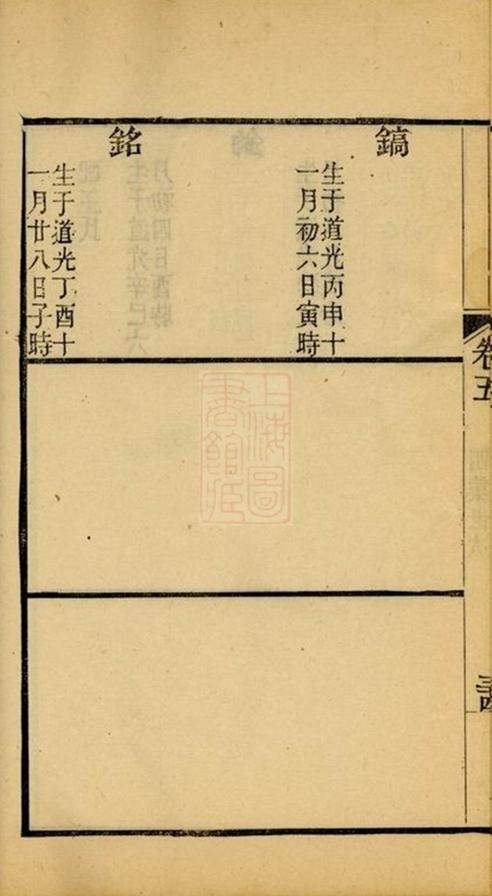 卷五
鎬
生于道光丙申十
一月初六日寅時
銘
生于道光丁酉十
一月廿八日子時
上海圖
書館藏